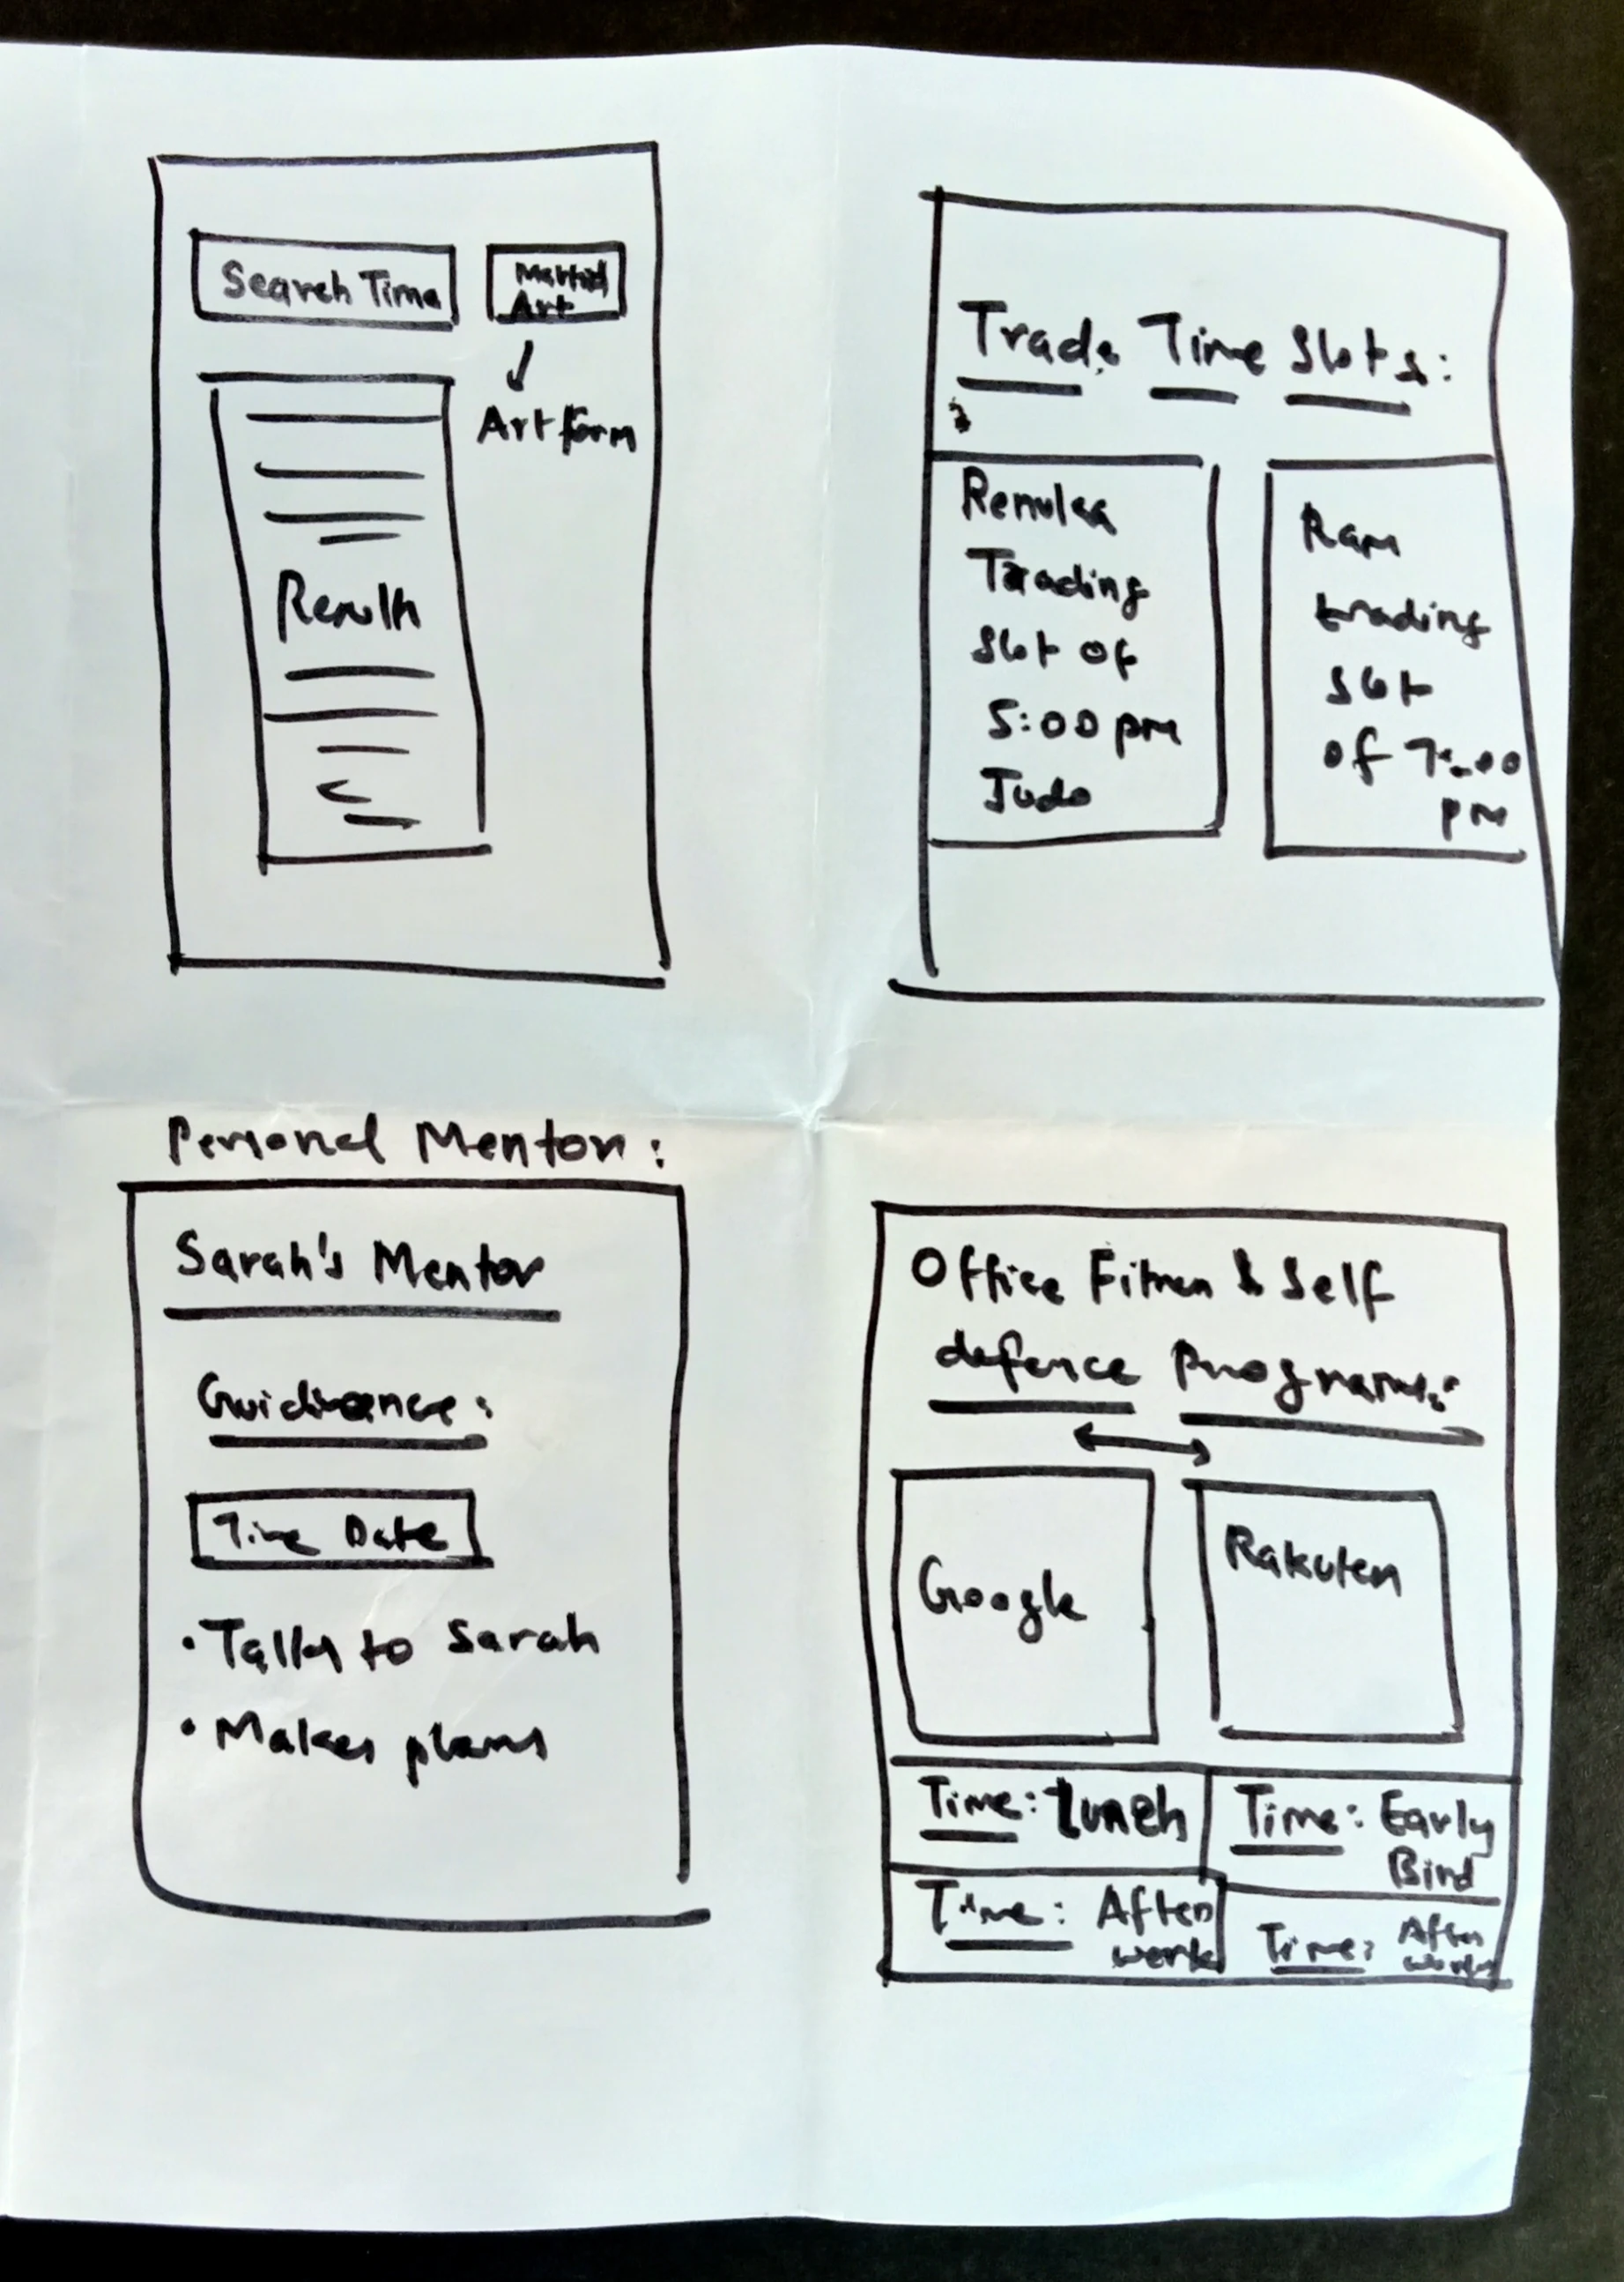 Search Time
Martial
Art
Art form
Result
Trade Time Slots:
Renuka
Trading
slot of
5:00 pm
Judo
Ram
trading
slot
of 7:00
pm
Personal Mentor:
Sarah's Mentor
Guidance:
Time Date
• Talks to Sarah
• Makes plans
Office Fitness & Self
defence Programs:
Google
Rakuten
Time: Lunch
Time: Early
Bird
Time: After
work
Time: After
work